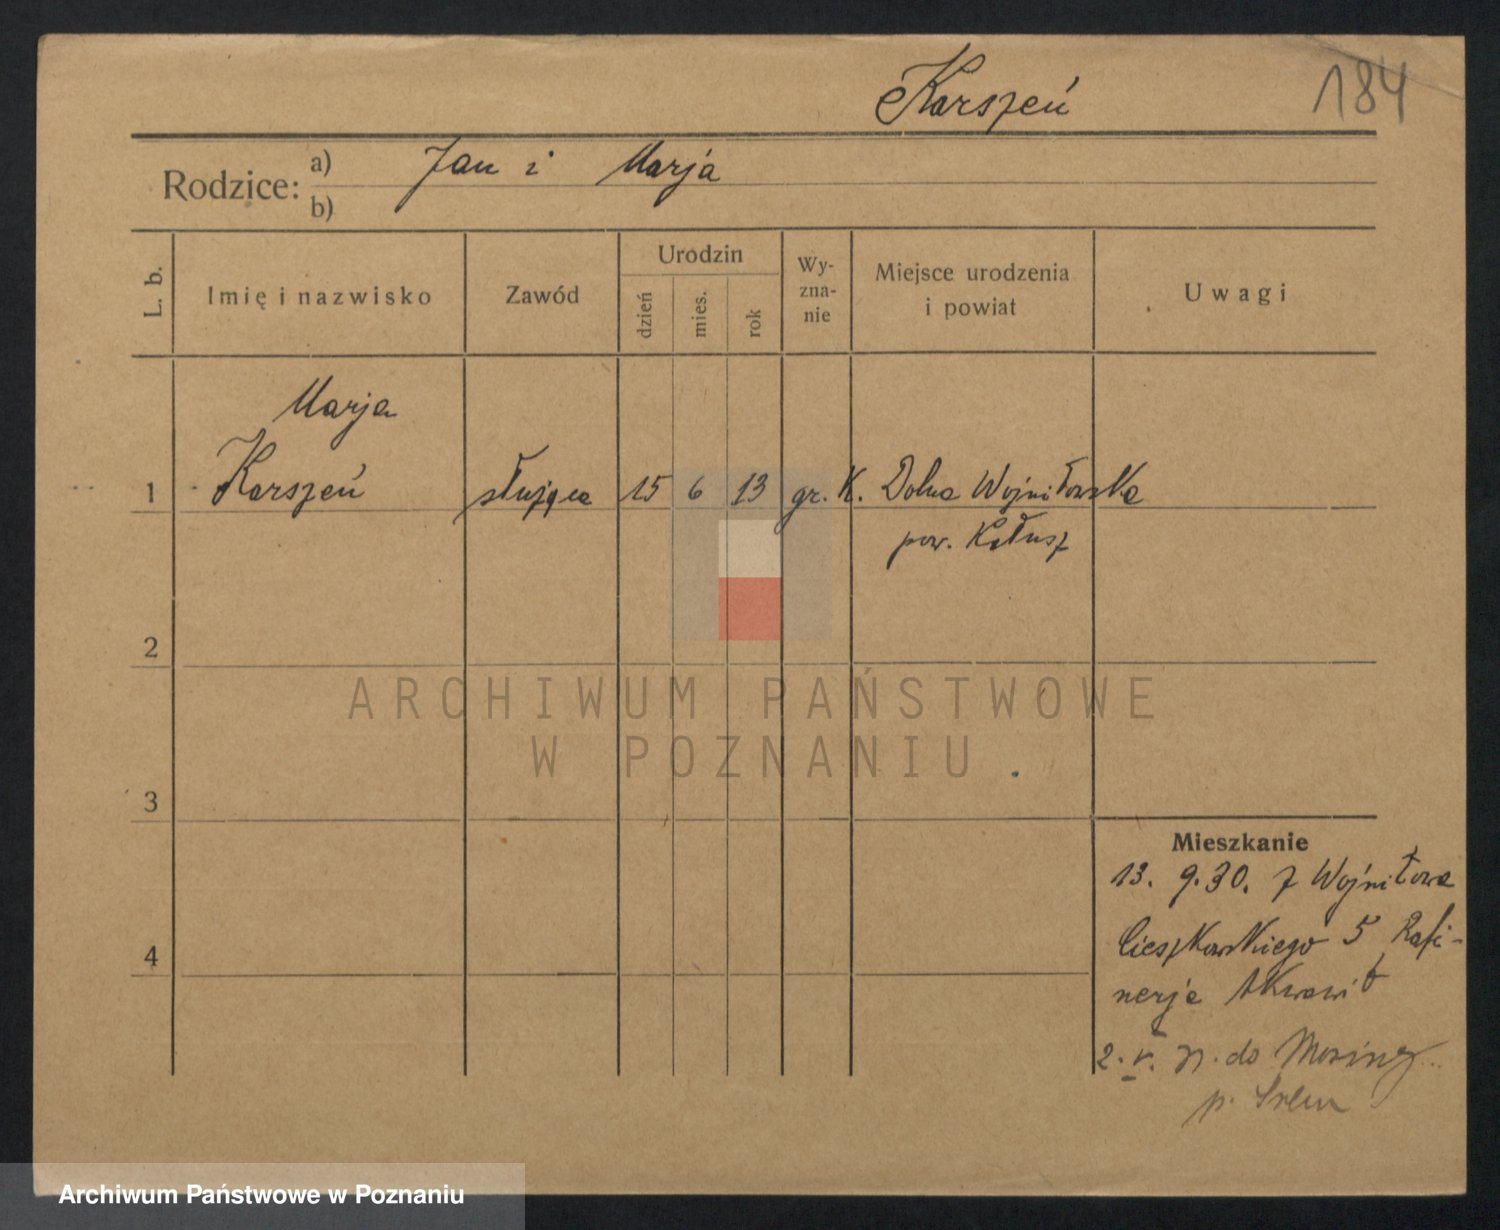 Karszeń
184
Rodzice: a) Jan i Marja
b)
L. b.
Imię i nazwisko
Zawód
Urodzin
dzień
mies.
rok
Wy-
zna-
nie
Miejsce urodzenia
i powiat
Uwagi
Marja
1 Karszeń służąca 15 6 13 gr. K. Dolna Wojniłowska
pow. Kałusz
2
ARCHIWUM PAŃSTWOWE
W POZNANIU
3
Mieszkanie
13. 9.30. z Wojniłowa
Cieszkowskiego 5 Rafi-
4
nerja Akwawit
2. V. do
p. Śrem
Archiwum Państwowe w Poznaniu